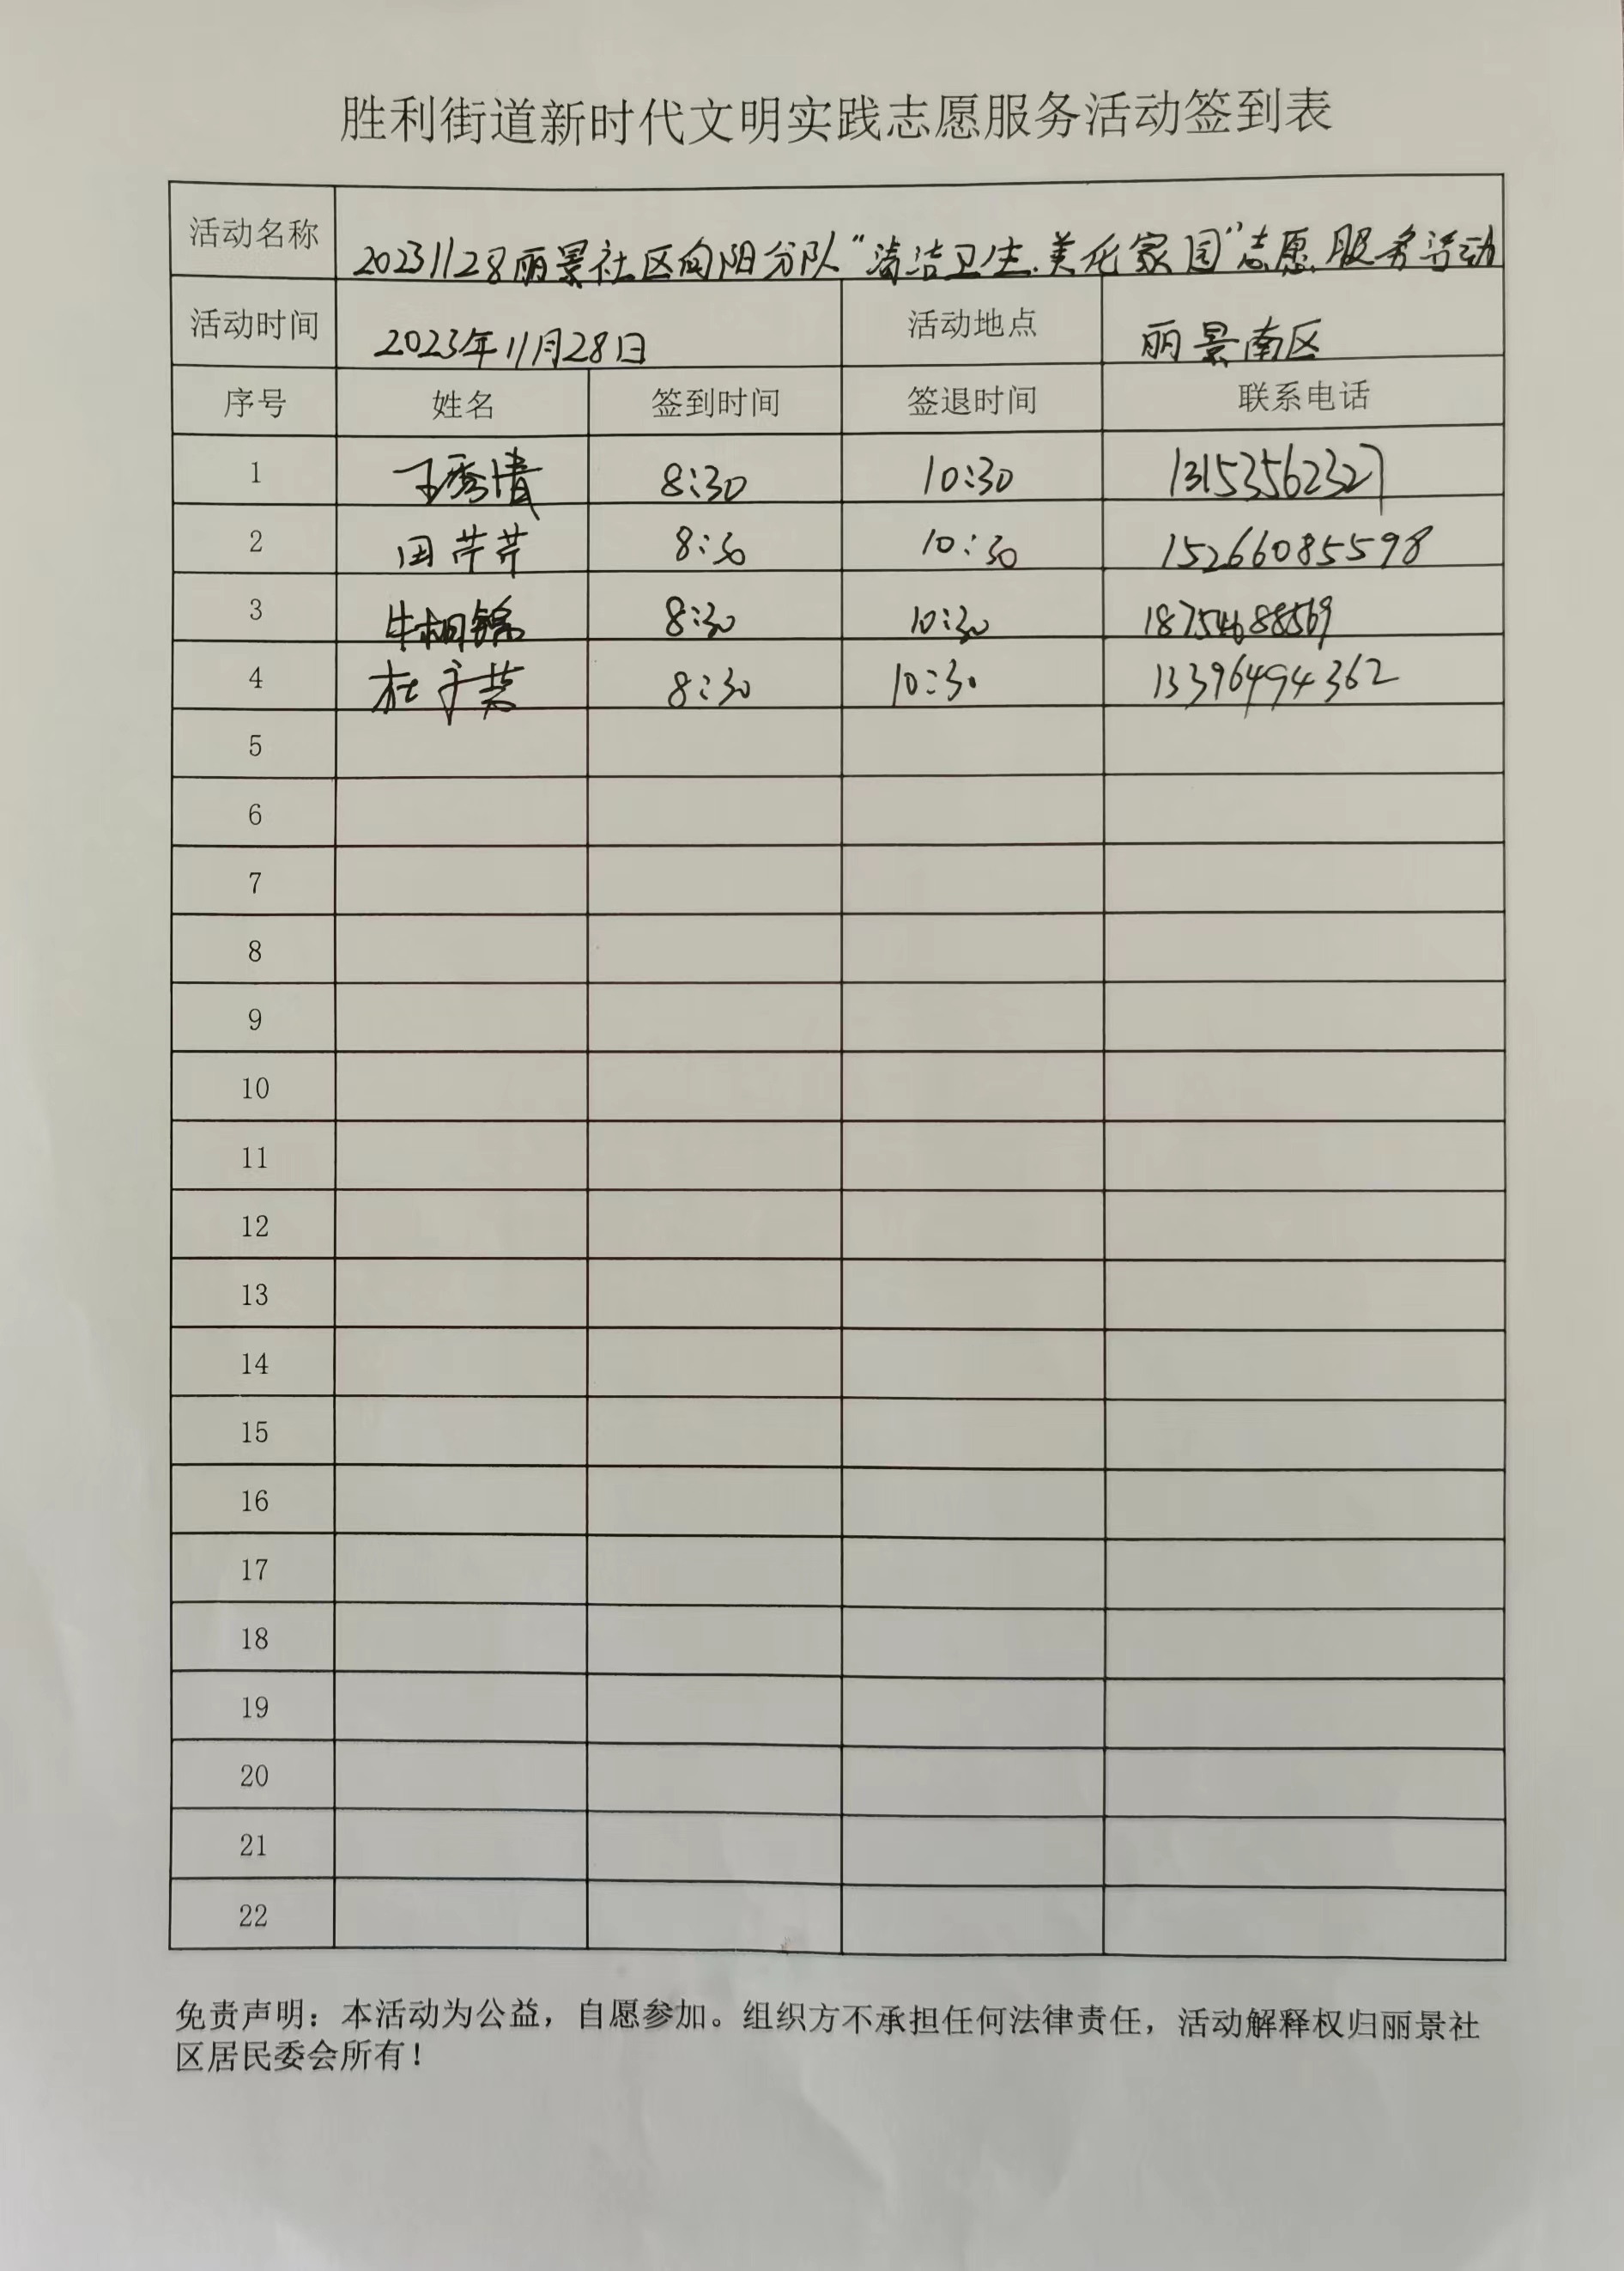 胜利街道新时代文明实践志愿服务活动签到表
活动名称 20231128丽景社区向阳分队“清洁卫生.美化家园”志愿服务活动
活动时间 2023年11月28日 活动地点 丽景南区
序号 姓名 签到时间 签退时间 联系电话
1 王秀清 8:30 10:30 13153562327
2 田芹芹 8:30 10:30 15266085598
3 牛相锦 8:30 10:30 18754688569
4 杜 8:30 10:30 13396494362
5
6
7
8
9
10
11
12
13
14
15
16
17
18
19
20
21
22
免责声明：本活动为公益，自愿参加。组织方不承担任何法律责任，活动解释权归丽景社
区居民委会所有！